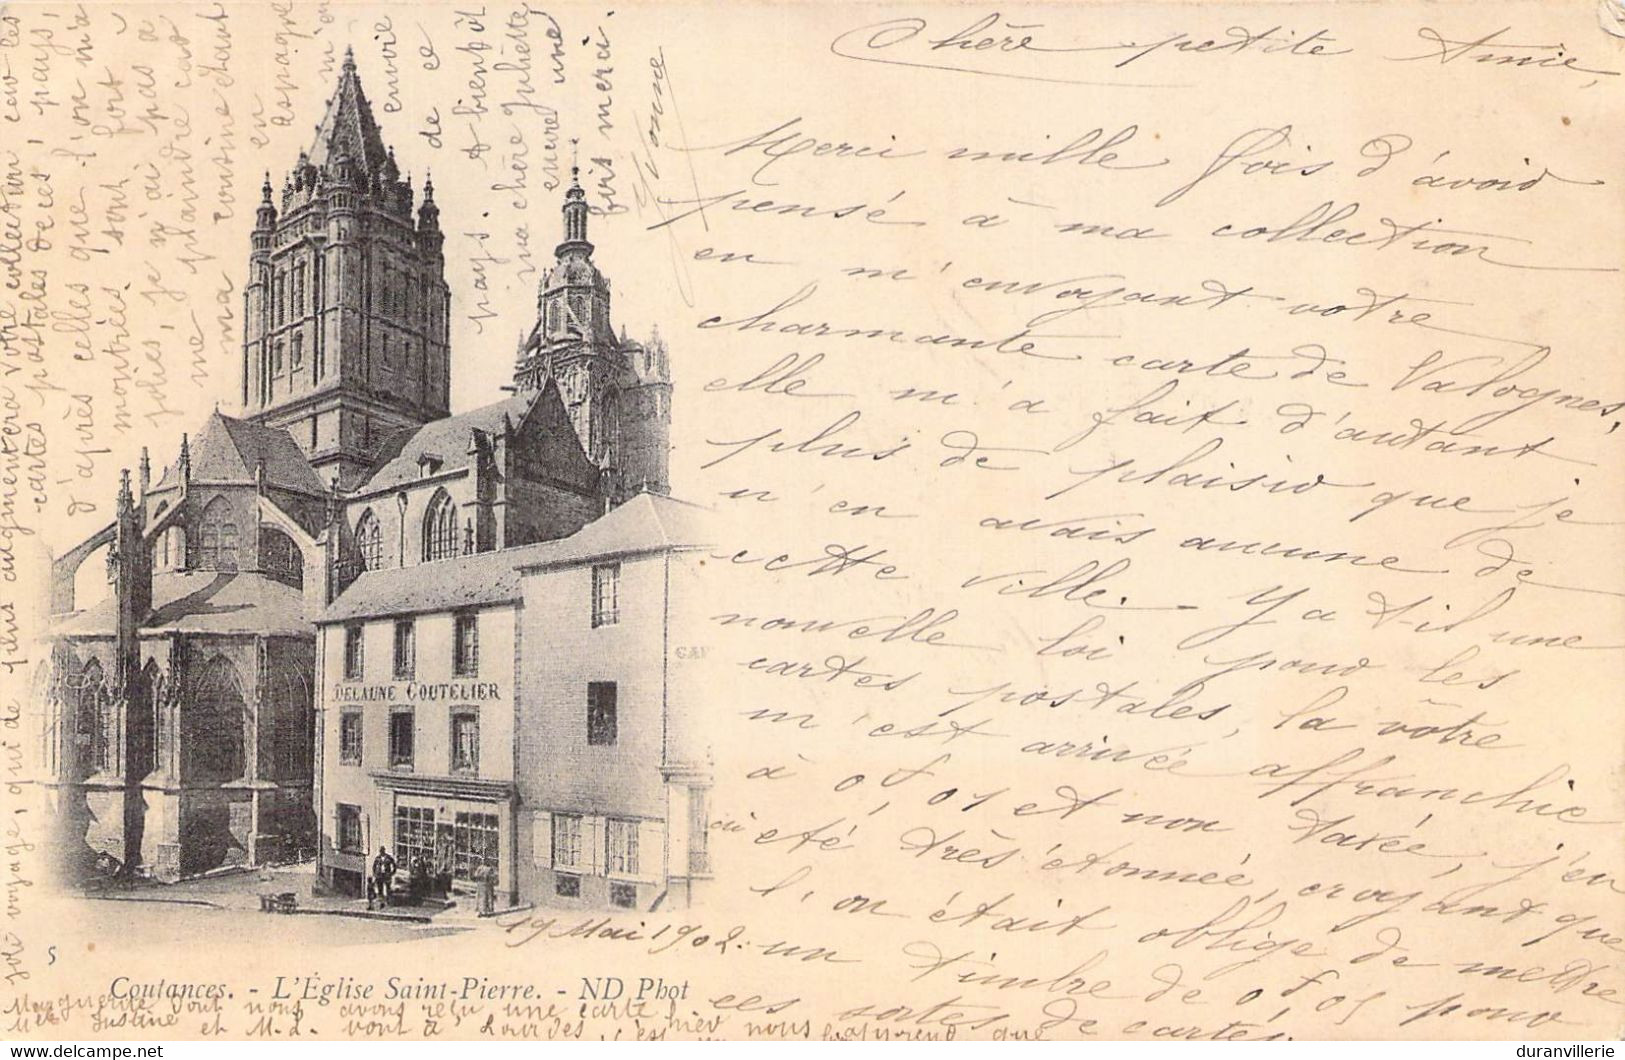 Chère petite Amie,
Merci mille fois d'avoir
pensé à ma collection
en m'envoyant votre
charmante carte de Valognes,
elle m'a fait d'autant
plus de plaisir que je
n'en avais aucune de
cette ville. - Y a t-il une
nouvelle loi pour les
cartes postales, la vôtre
m'est arrivée affranchie
à 0,f 05 et non taxée, j'en
ai été très étonnée, croyant que
l'on était obligé de mettre
un timbre de 0,f 05 pour
ces sortes de cartes.
19 Mai 1902.
hier nous apprend que
Marguerite dont nous avons reçu une carte
Mlle Justine et M. L. vont à Lourdes, c'est un
joli voyage, qui de plus augmentera votre collection, car les
cartes postales de ces pays,
d'après celles que l'on m'a
montrées sont fort
jolies, je n'ai pas à
me plaindre car
ma cousine étant
en
Espagne
m'en
envoie
de ce
pays. A bientôt
ma chère Juliette
encore une
fois merci.
Yvonne
DELAUNE COUTELIER
CAF
5
Coutances. - L'Église Saint-Pierre. - ND Phot
duranvillerie